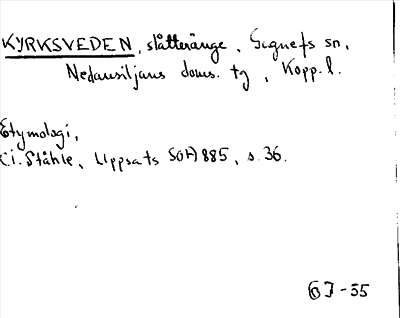 KYRKSVEDEN, slåtteränge, Gagnefs sn,
Nedansiljans doms. tg, Kopp. l.
Etymologi,
C.i. Ståhle, Uppsats SOH 885, s. 36.
GJ-55